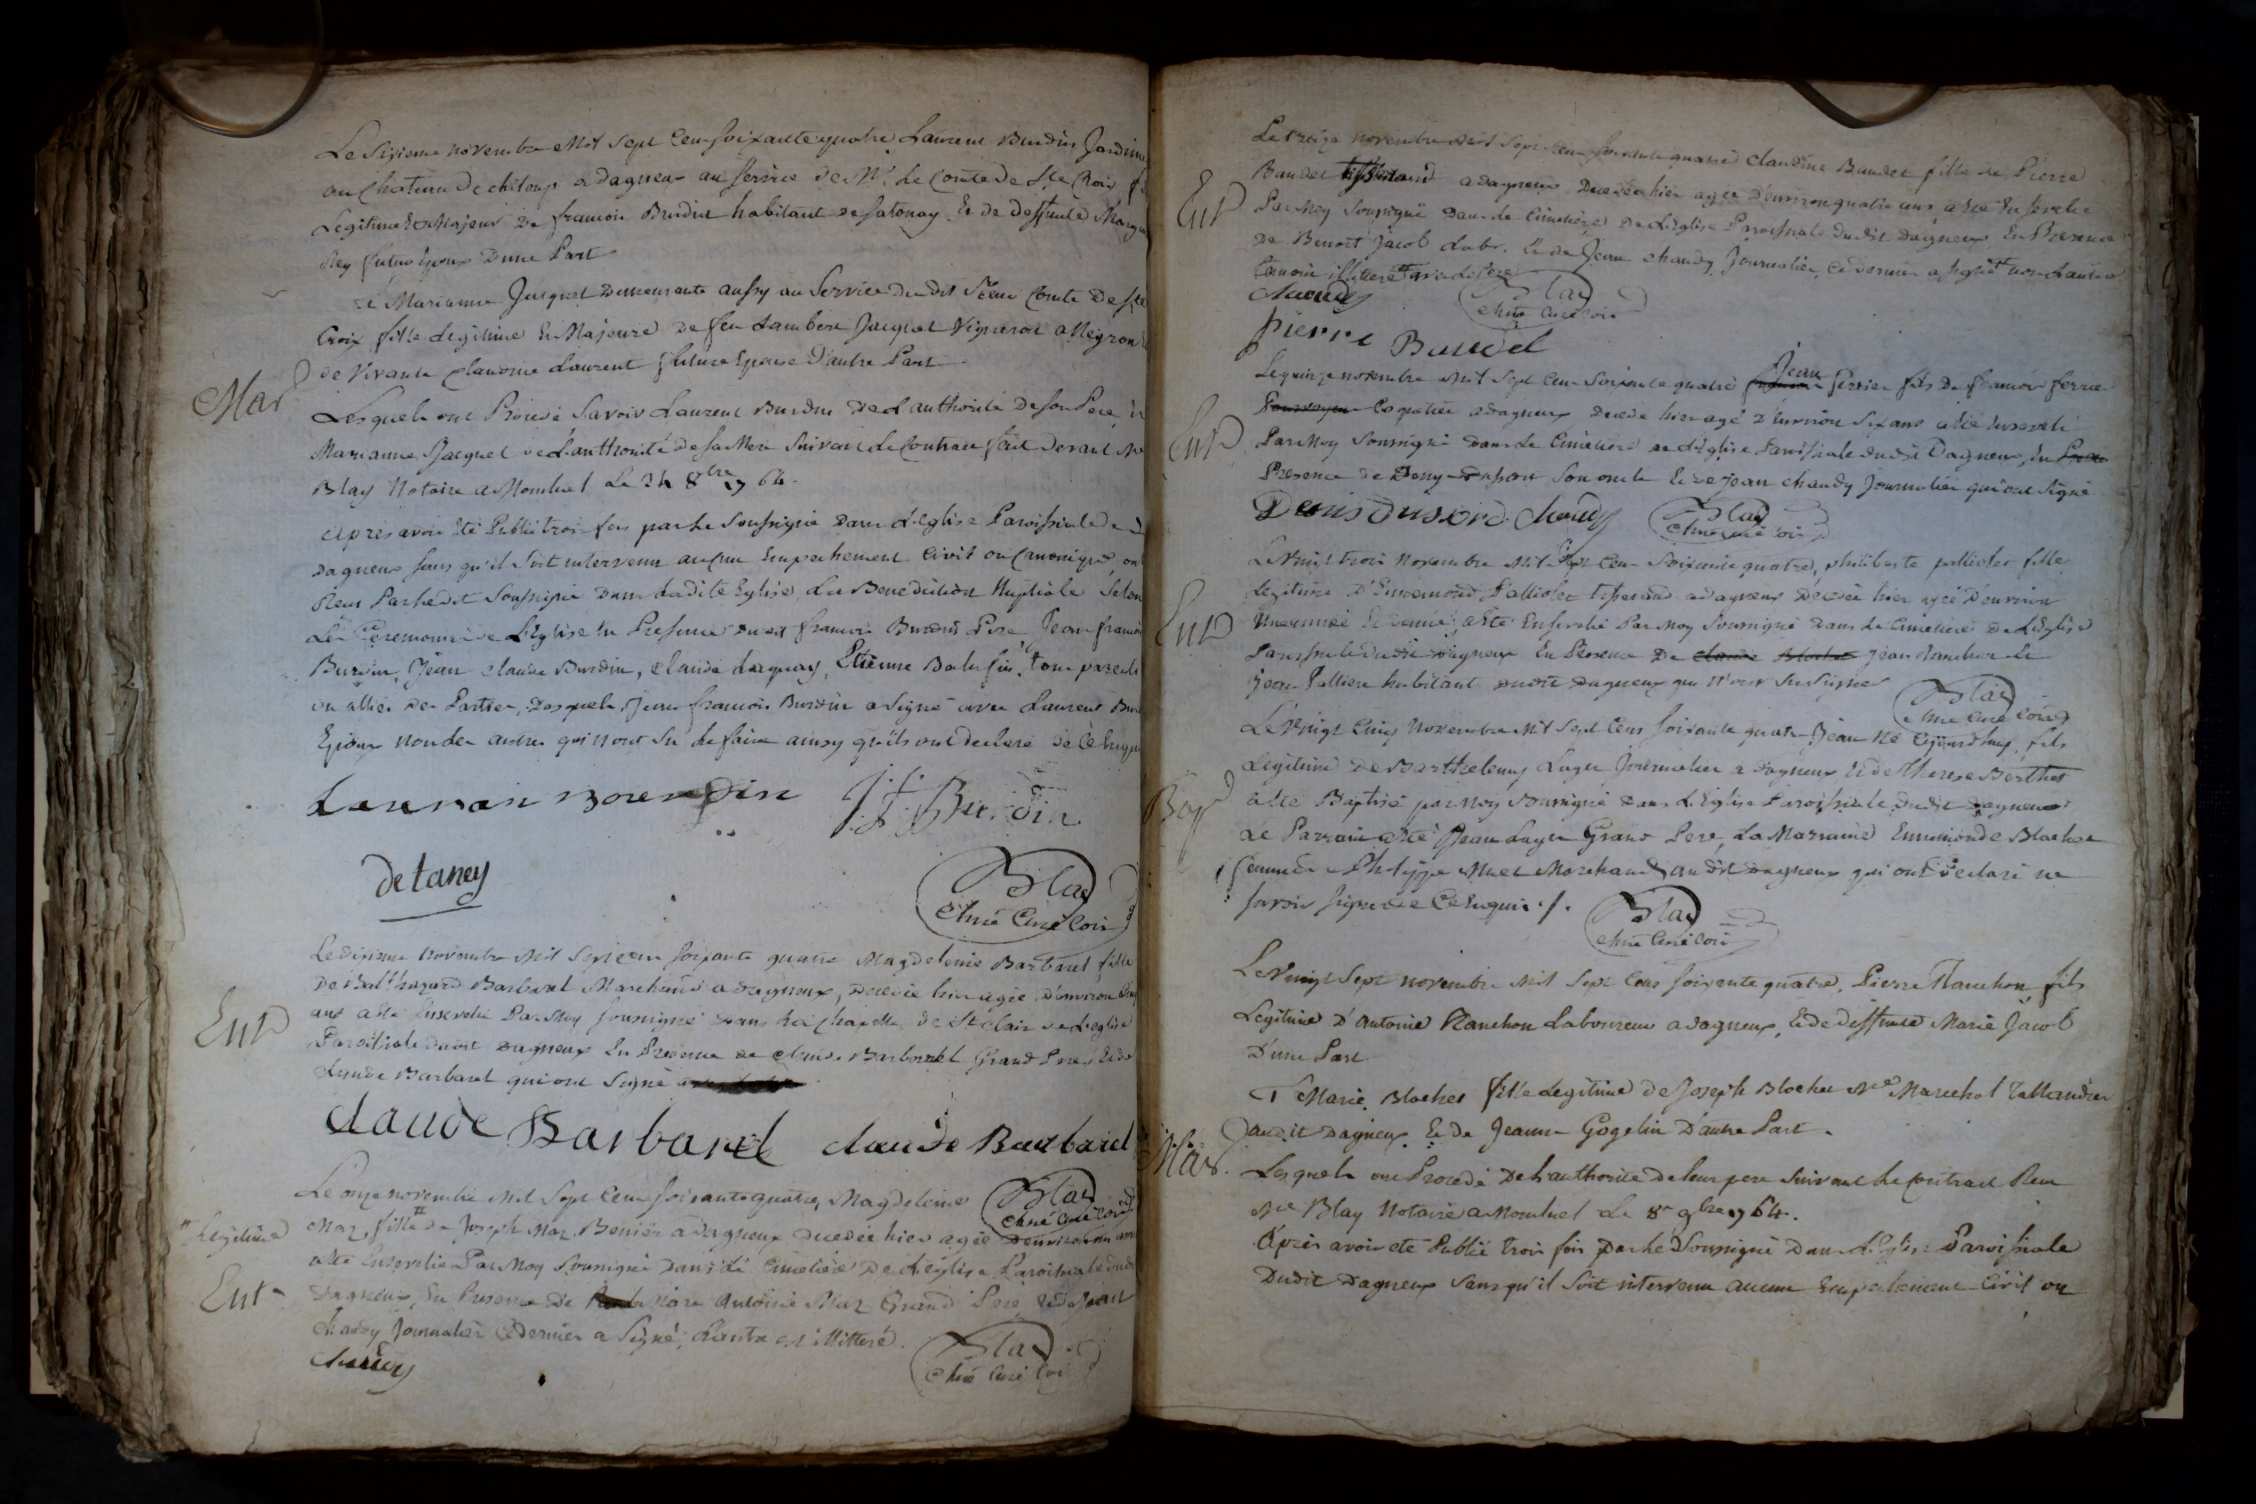 Le Sixieme novembre Mil Sept Cens soixante quatre Laurent Burdin Jardinie
au Chateau de chiloup a dagneux au service de Mr Le Comte de Ste Croix fi
Legitime Et Majeur De francois Burdin habitant de Satonay Et de deffunte Margue
Rey futur Epoux Dune Part
Et Marianne Jacquet Demeurante aussy au Service du dit Comte de Ste
Croix fille Legitime Et Majeure de feu Lambert Jacquet Vigneron a
de Vivante Claudine Laurent future Epouse D'autre Part
Mar
Lesquels ont Procedé Savoir Laurent Burdin de L'authorité de son Pere, Et
Marianne Jacquet de L'authorité de sa Mere Suivant Le Contract fait devant Me
Blay Notaire a Montluel Le 24 8bre 1764.
Apres avoir été Publié trois fois par Le Soussigné dans L'eglise Paroissiale de
Dagneux sans qu'il Soit intervenu aucun Empechement Civil ou Canonique, ont
Reçu Par Ledit Soussigné dans Ladite Eglise La Benediction Nuptiale Selon
Les Ceremonies de L'Eglise En Presence dudit francois Burdin Pere, Jean francois
Burdin, Jean Claude Burdin, Claude, Etienne, tous parents
ou alliés des Parties, Desquels Jean francois Burdin a Signé avec Laurent Bur
Epoux non Les autres qui n'ont Su Le faire ainsy qu'ils ont declaré de Ce Enquis
Laurian Bourdin J. f. Burdin
detaney
Blay
Curé
Le dixieme novembre Mil Sept cens soixante quatre Magdeleine Barbaret fille
De Balthazard Barbaret Marchand a dagneux, Decedée hier agée D'environ
ans a été Ensevelie Par Moy soussigné dans La Chapelle de St Clair de L'eglise
Ent
Paroissiale dudit Dagneux En Presence de Claude Barbaret Grand Pere, Et de
Claude Barbaret qui ont Signé
Claude Barbaret Claude Barbaret
Blay
Curé
Le onze novembre Mil Sept Cens soixante quatre, Magdeleine
Legitime
Maz, fille de Joseph Maz a dagneux decedée hier agée D'environ un an
a été Ensevelie Par Moy Soussigné dans Le Cimetiere De L'eglise Paroissiale dudit
Ent
Dagneux, En Presence De Antoine Maz Grand Pere Et de Jean
Chaudy Journalier Ce Dernier a Signé, L'autre est illitteré.
Chaudy
Blay
Curé
Le treize novembre Mil Sept cens soixante quatre Claudine Baudet fille de Pierre
Baudet tisserand a dagneux Decedée hier agée D'environ quatre ans, a été Ensevelie
Ent
Par Moy Soussigné Dans Le Cimetiere De L'eglise Paroissiale du dit Dagneux, En Presence
De Benoit Jacob Labr. Et de Jean Chaudy Journalier, Ce dernier a signé non L'autre
Chaudy
Blay
Curé
Pierre Baudet
Le quinze novembre Mil Sept Cens Soixante quatre Jean ferrier fils De francois ferrier
a dagneux decedé hier agé D'environ Six ans a été Enseveli
Ent
Par Moy Soussigné Dans Le Cimetiere de L'église Paroissiale du dit Dagneux, En
Presence de Deny Son oncle Et de Jean Chaudy Journalier qui ont Signé
Chaudy
Blay
Curé
Le Vingt trois Novembre Mil Sept Cens Soixante quatre, Philiberte Palliolet fille
Legitime D'Ennemond Palliolet tisserand a dagneux Decedée hier agée D'environ
Ent
Une année Et demie, a été Ensevelie Par Moy Soussigné Dans Le Cimetiere De L'Eglise
Paroissiale du dit Dagneux En Presence De Claude Blachet Jean Planchon Et
Jean habitant dudit Dagneux qui n'ont Su Signer
Blay
Curé
Le Vingt Cinq Novembre Mil Sept Cens soixante quatre Jean Né aujourd'huy, fils
Legitime De Barthelemy Layer Journalier a Dagneux Et de Therese Berthet
Bap
a été Baptisé par Moy Soussigné Dans L'Eglise Paroissiale dudit Dagneux
Le Parrain a été Jean Layer Grand Pere, La Marraine Ennemonde Blachet
femme de Philippe Muet Marchand au dit Dagneux qui ont declaré ne
Savoir signer de Ce Enquis ./.
Blay
Curé
Le Vingt Sept novembre Mil Sept Cens soixante quatre, Pierre Planchon fils
Legitime D'Antoine Planchon Laboureur a dagneux, Et de deffunte Marie Jacob
D'une Part
Et Marie Blachet fille Legitime de Joseph Blachet Me Marechal Tallandier
Mar.
audit Dagneux Et de Jeanne Gogelin D'autre Part.
Lesquels ont Procedé De L'authorité de leur pere Suivant Le Contract Reçu
Me Blay Notaire a Montluel Le 8e 9bre 1764.
Apres avoir été Publié trois fois par Le Soussigné Dans L'Eglise Paroissiale
Dudit Dagneux Sans qu'il Soit intervenu aucun Empechement Civil ou